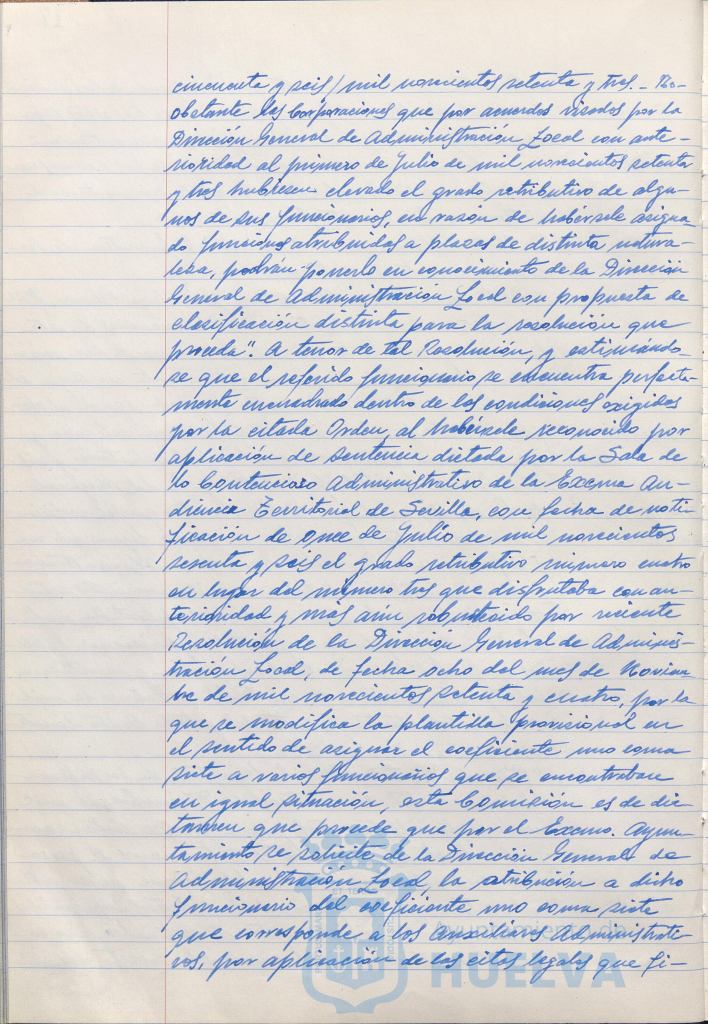 cincuenta y seis/mil novecientos setenta y tres.- No-
obstante las Corporaciones que por acuerdos visados por la
Dirección General de Administración Local con ante-
rioridad al primero de Julio de mil novecientos setenta
y tres hubiesen elevado el grado retributivo de algu-
nos de sus funcionarios, en razón de habérsele asigna-
do funciones atribuidas a plazas de distinta natura-
leza, podrán ponerlo en conocimiento de la Dirección
General de Administración Local con propuesta de
clasificación distinta para la resolución que
proceda". A tenor de tal Resolución, y estimándo-
se que el referido funcionario se encuentra perfecta-
mente encuadrado dentro de las condiciones exigidas
por la citada Orden, al habérsele reconocido por
aplicación de Sentencia dictada por la Sala de
lo Contencioso Administrativo de la Excma Au-
diencia Territorial de Sevilla, con fecha de noti-
ficación de once de Julio de mil novecientos
sesenta y seis el grado retributivo número cuatro
en lugar del número tres que disfrutaba con an-
terioridad y más aún robustecido por reciente
Resolución de la Dirección General de Adminis-
tración Local, de fecha ocho del mes de Noviem
bre de mil novecientos setenta y cuatro, por la
que se modifica la plantilla provisional en
el sentido de asignar el coeficiente uno coma
siete a varios funcionarios que se encontraban
en igual situación, esta Comisión es de dic-
tamen que procede que por el Excmo. Ayun-
tamiento se solicite de la Dirección General de
Administración Local, la atribución a dicho
funcionario del coeficiente uno coma siete
que corresponde a los Auxiliares Administrati-
vos, por aplicación de las citas legales que fi-
HUELVA